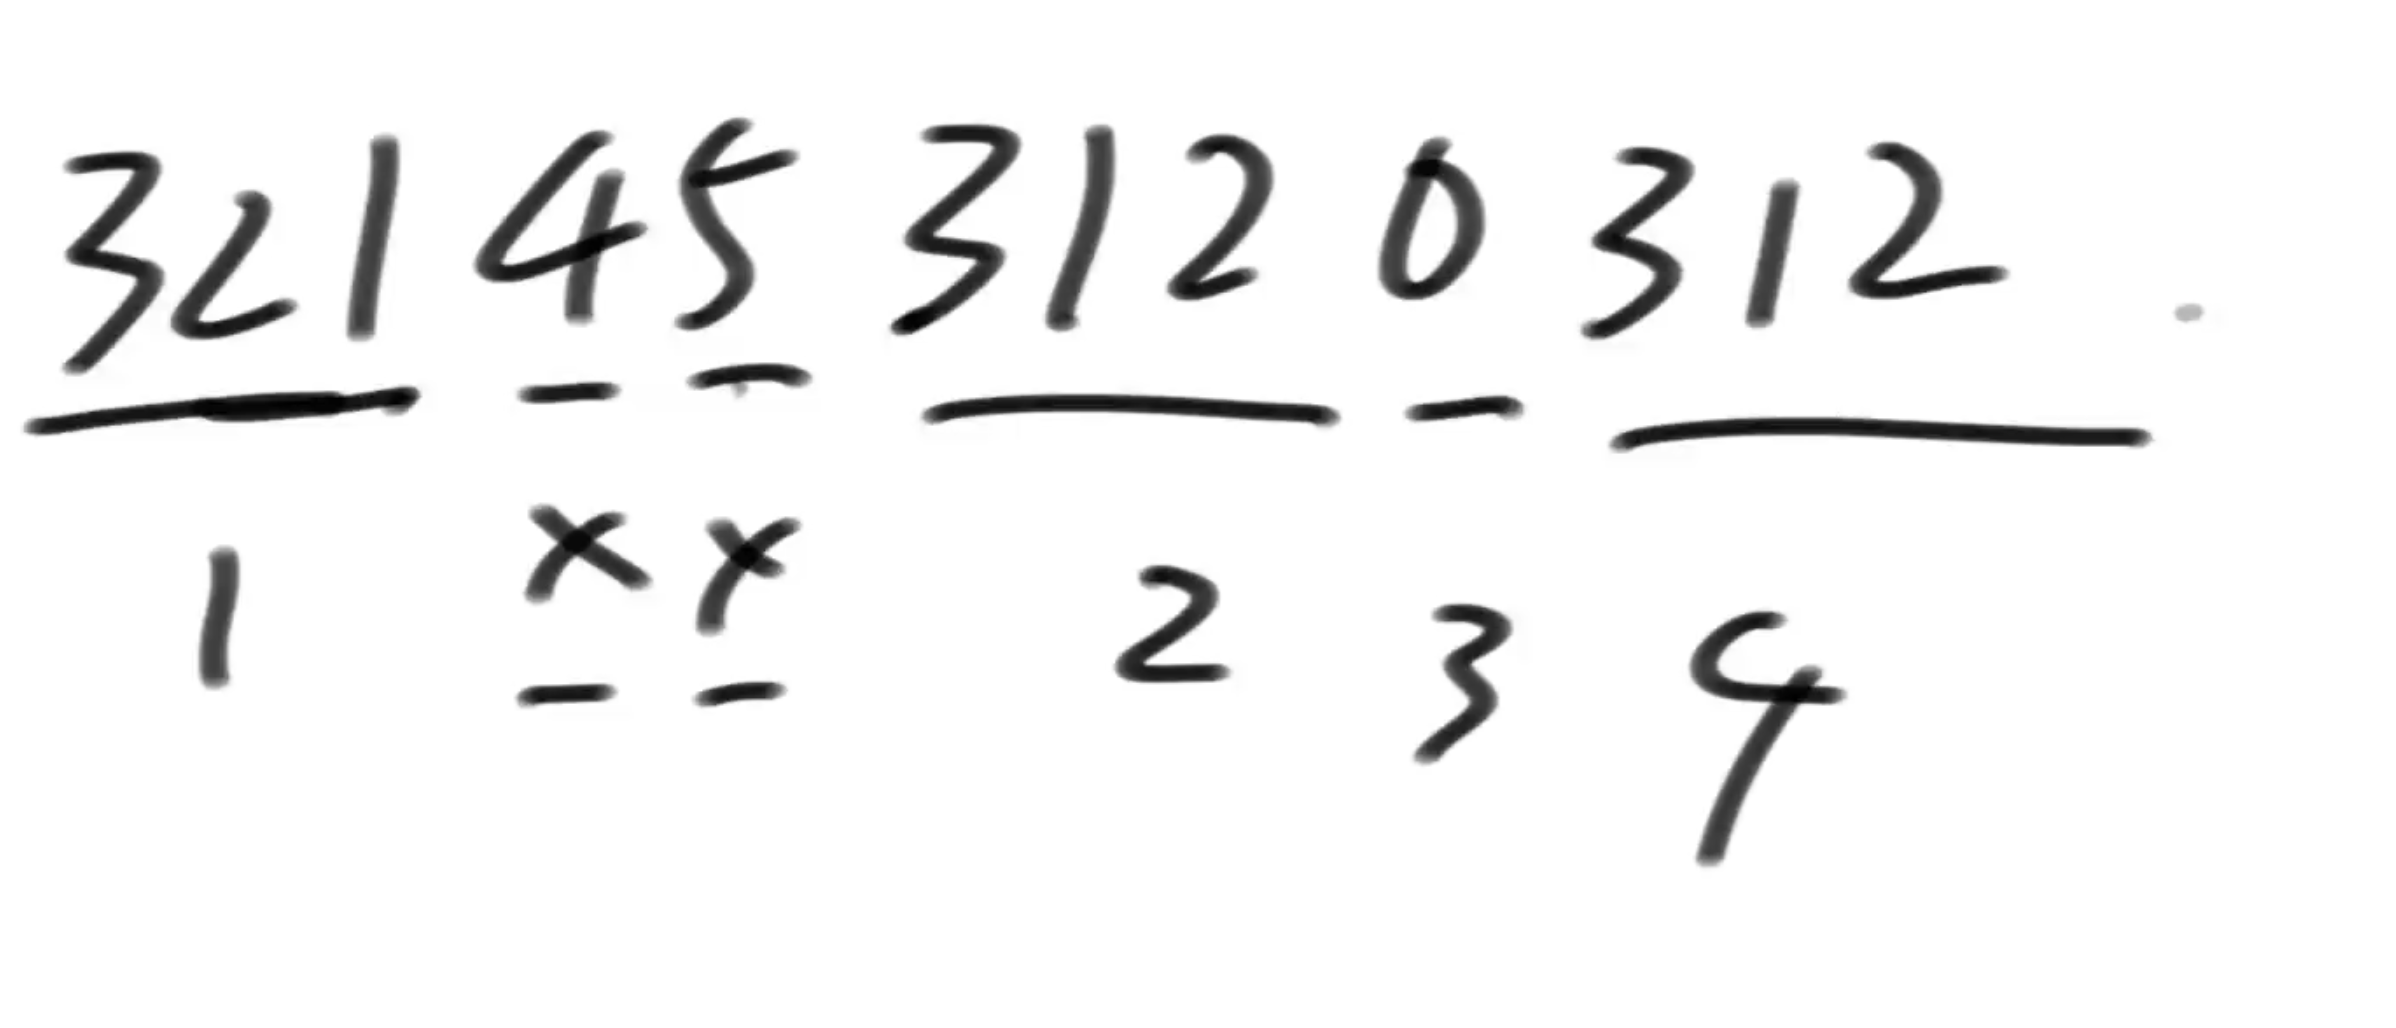 321 4 5 312 0 312 .
1 x x 2 3 4